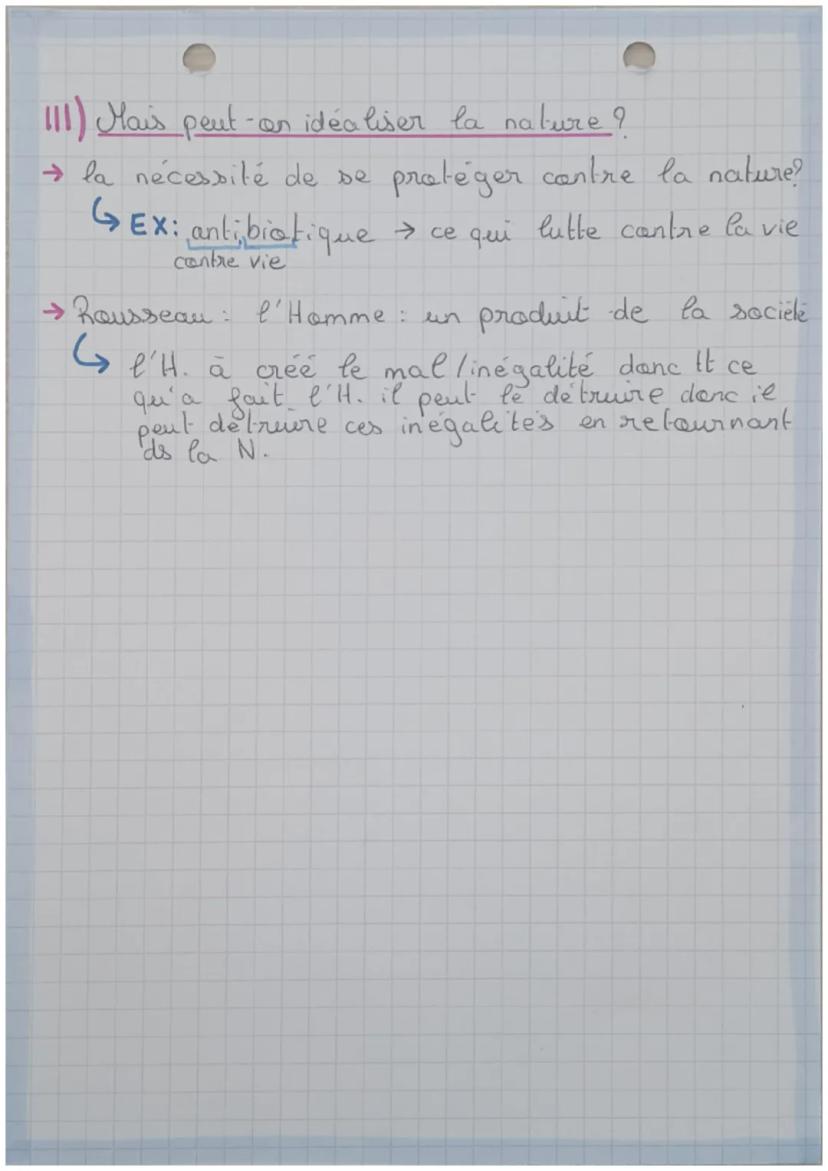 III) Mais peut-on idéaliser la nature ?
→ la nécessité de se protéger contre la nature?
↳ EX: antibiotique → ce qui lutte contre la vie
contre vie
→ Rousseau : l'Homme : un produit de la société
↳ l'H. à créé le mal/inégalité donc tt ce
qu'a fait l'H. il peut le détruire donc il
peut détruire ces inégalités en retournant
ds la N.